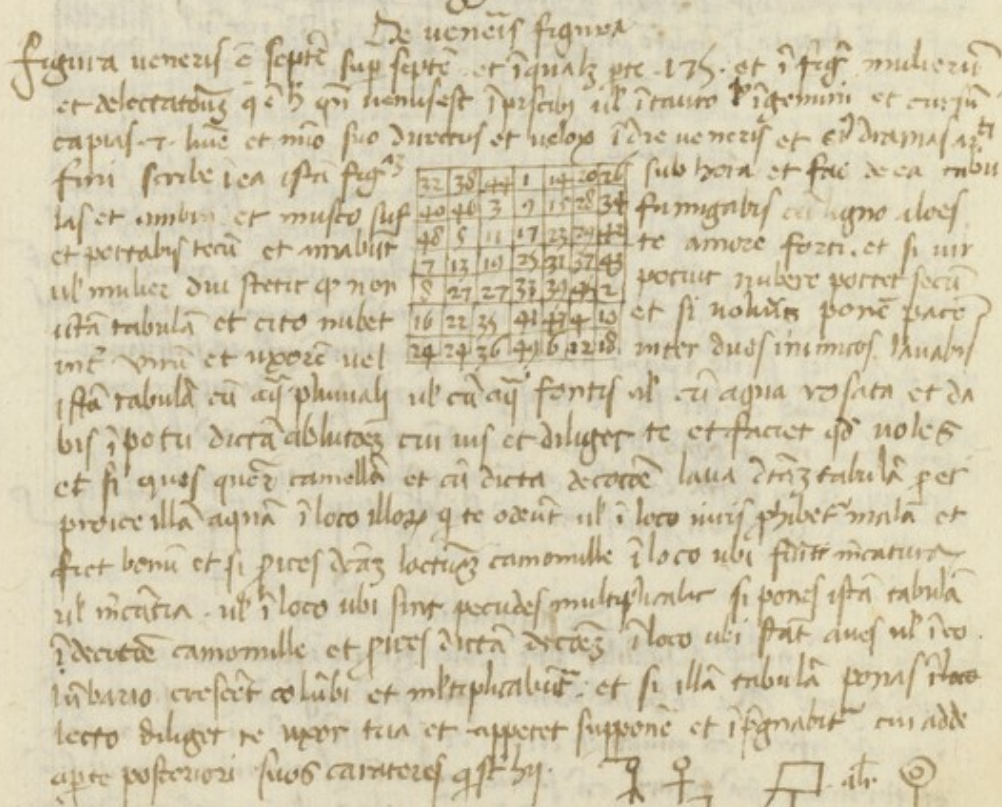 De veneris figura
Figura veneris ē septē sup septē et ī qualz pte 175 et ī fig mulierū
et delectatōnz q ē h qn venus est ī piscibz vl ī tauro vl ī gemini et cursū
capias lune et mīo suo directus et velox ī die veneris et dramas
fini scribe ī ea istā fig sub hora et fac de ea tabu
las et ambra et musco suf fumigabis cū ligno aloes
et portabis tecū et amabūt te amore forti et si vir
vl mulier diu stetit q non potuit nubere portet secū
istā tabulā et cito nubet et si volueris ponē pacē
int virū et uxorē vel inter duos inimicos lavabis
32 38 44 1 14 20 26
40 46 3 9 15 28 34
48 5 11 17 23 29 42
7 13 19 25 31 37 43
8 27 27 33 39 2
16 22 35 41 4 10
24 24 36 49 6 12 18
istā tabulā cū aq pluviali vl cū aq fontis vl cū aqua rosata et da
bis ī potu dictā ablutōez cui vis et diliget te et faciet qd voles
et si quos camellā et cū dicta decoctōe lava dtāz tabulā et
proice illā aquā ī loco illorz q te odeūt vl ī loco malā et
fiet bonū et si pices dcāz camomille ī loco ubi mcatura
vl mcātia vl ī loco ubi sint pecudes multiplicabit si pones istā tabulā
ī decoctōe camomille et pices dictā decōez ī loco ubi stāt aves vl ī co
lūbario crescēt colūbi et mltiplicabūt et si illā tabulā ponas ī loco
lecto diliget te uxor tua et appetet supponē et īpgnabit cui adde
a pte posteriori suos carateres q st hij